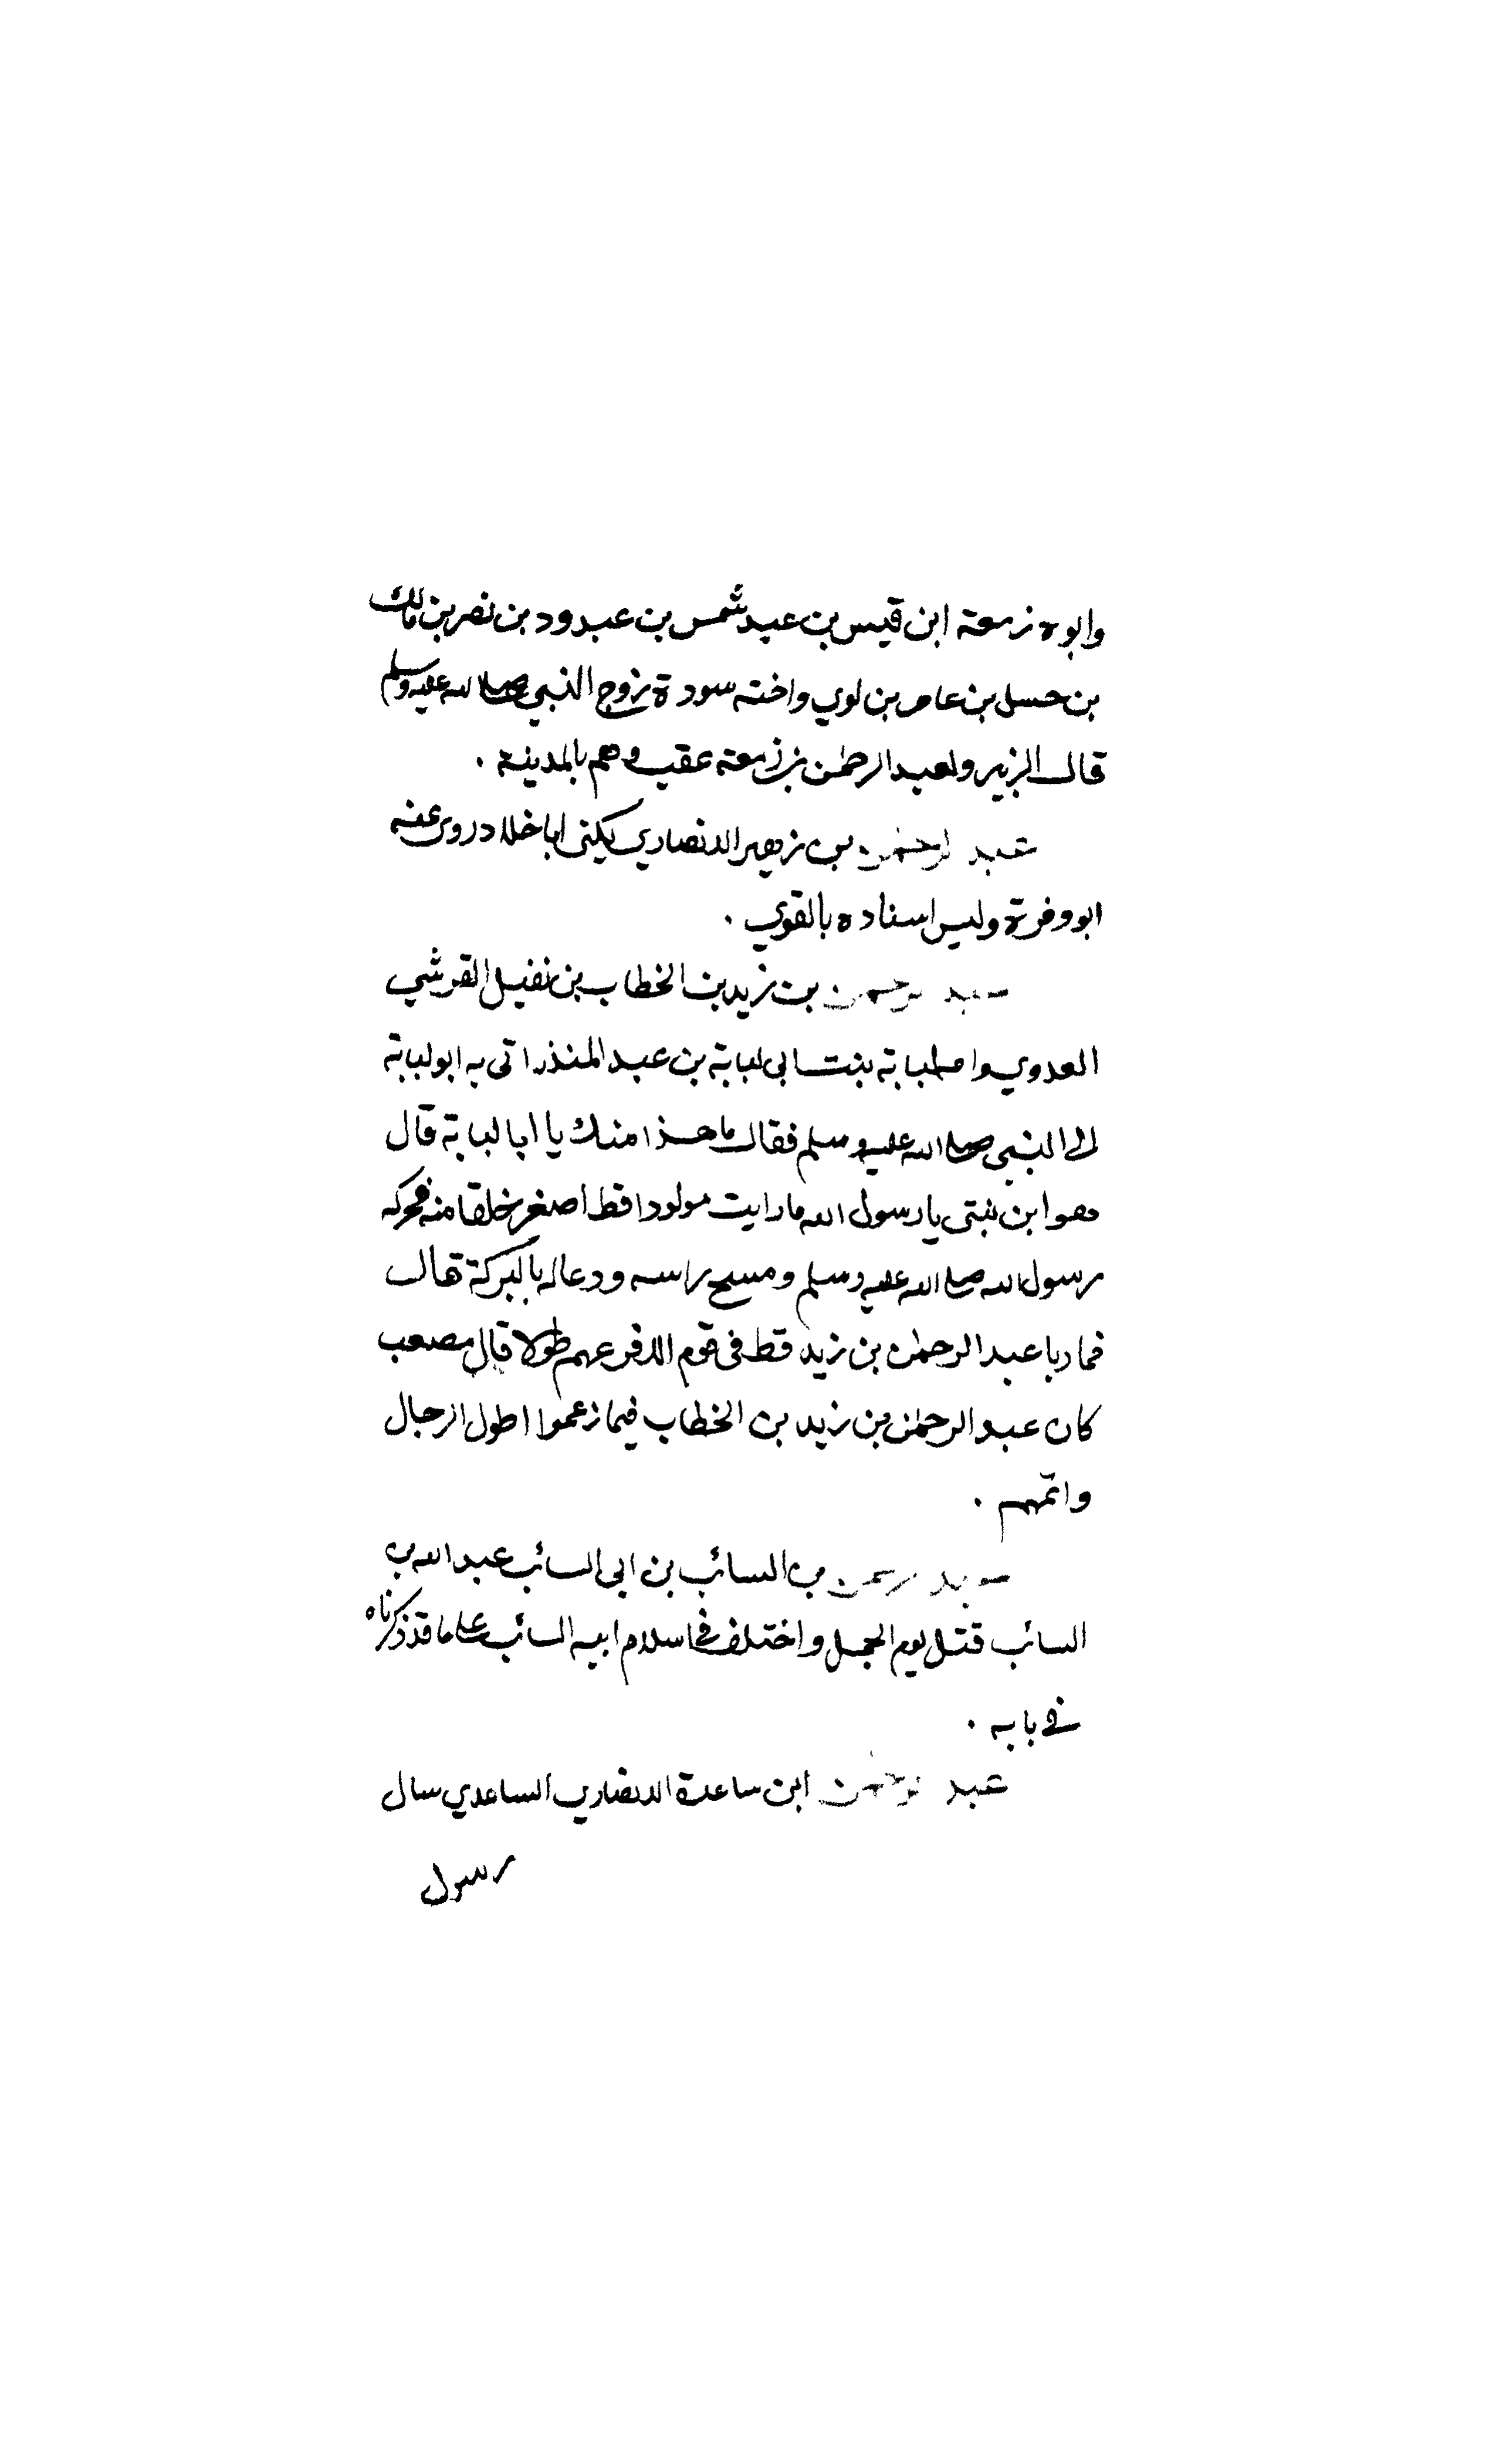 وابوه زمعة ابن قيس بن عبد شمس بن عبد ود بن نصر بن مالك
بن حسل بن عامر بن لوي واخته سودة زوج النبي صلى الله عليه وسلم
قال الزبير ولعبد الرحمن بن زمعة عقب وهم بالمدينة .
عبد الرحمن بن زهير الانصاري يكنى ابا خلاد روى عنه
ابو وفرة وليس اسناده بالقوي .
عبد الرحمن بن زيد بن الخطاب بن نفيل القرشي
العدوي وامه لبابة بنت ابي لبابة بن عبد المنذر اتى به ابو لبابة
الى النبي صلى الله عليه وسلم فقال ما هذا منك يا ابا لبابة قال
هو ابن بنتى يا رسول الله ما رايت مولودا قط اصغر خلقا منه فحركه
رسول الله صلى الله عليه وسلم ومسح راسه ودعا له بالبركة قال
فما ريا عبد الرحمن بن زيد قط فى قوم الا فرعهم طولا قال مصعب
كان عبد الرحمن بن زيد بن الخطاب فيما زعموا اطول الرجال
واتمهم .
عبد الرحمن بن السائب بن ابى السائب عبد الله بن
السائب قتل يوم الجمل واختلف فى اسلام ابيه السائب على ما قد ذكرناه
في بابه .
عبد الرحمن ابن ساعدة الانصاري الساعدي سال
رسول